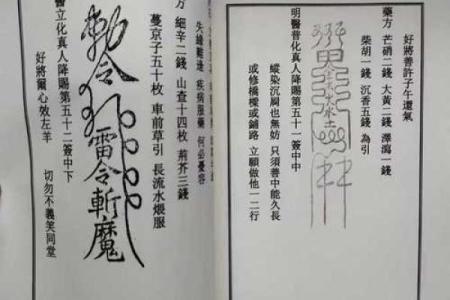 好將善許子午還氣
藥方 芒硝二錢 大黃二錢 澤瀉一錢
柴胡一錢 沉香五錢 為引
明醫普化真人降賜第五十一簽中中
縱染沉屙也無妨 只須善中能久長
或修橋樑或鋪路 立願做他一二行
疾病服藥 何必憂容
方 細辛二錢 山查十四枚 荊芥三錢
蔓京子五十枚 車前草引 長流水煨服
敕令 雷令斬魔
醫立化真人降賜第五十二簽中下
好將爾心效左羊 切勿不義笑同堂